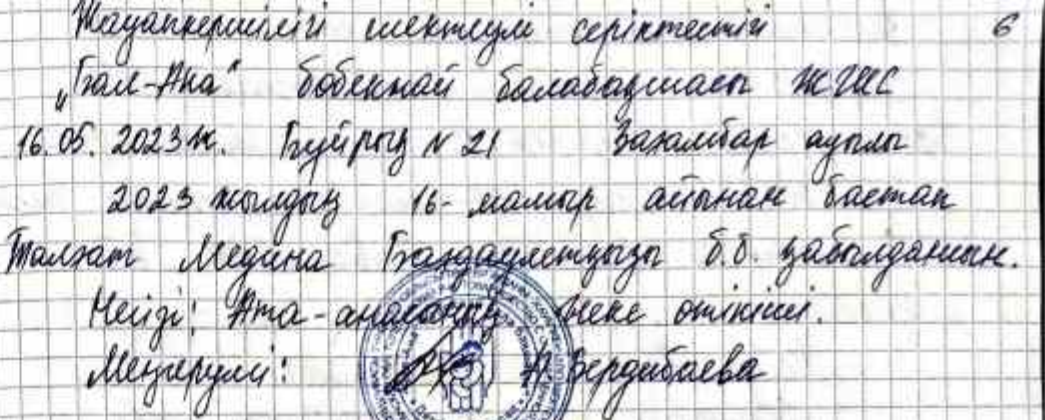 Жауапкершілігі шектеулі серіктестігі 6
„Бал-Ана“ бөбекжай балабақшасы ЖШС
16.05. 2023ж. Бұйрық N 21 Базамбар ауылы
2023 жылдың 16- мамыр айынан бастап
Талхат Медина Бағдаулетқызы б.б. қабылдансын.
Негізі: Ата-ананың жеке өтініші.
Меңгеруші: А. Бердибаева